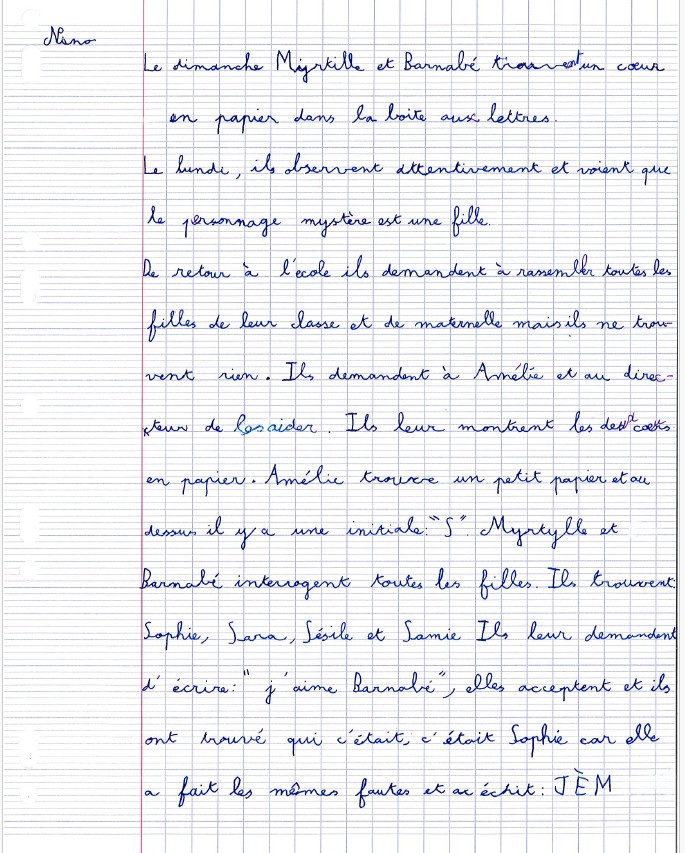 Nino
Le dimanche Myrtille et Barnabé trouvent un cœur
en papier dans la boite aux lettres.
Le lundi, ils observent attentivement et voient que
le personnage mystère est une fille.
De retour à l'école ils demandent à rassembler toutes les
filles de leur classe et de maternelle mais ils ne trou-
vent rien. Ils demandent à Amélie et au direc-
teur de les aider. Ils leur montrent les deux cœurs
en papier. Amélie trouve un petit papier et au
dessus il y a une initiale: "S". Myrtylle et
Barnabé interrogent toutes les filles. Ils trouvent:
Sophie, Sara, Sésile et Samie Ils leur demandent
d'écrire: "j'aime Barnabé", elles acceptent et ils
ont trouvé qui c'était, c'était Sophie car elle
a fait les mêmes fautes et a échit: JÈM